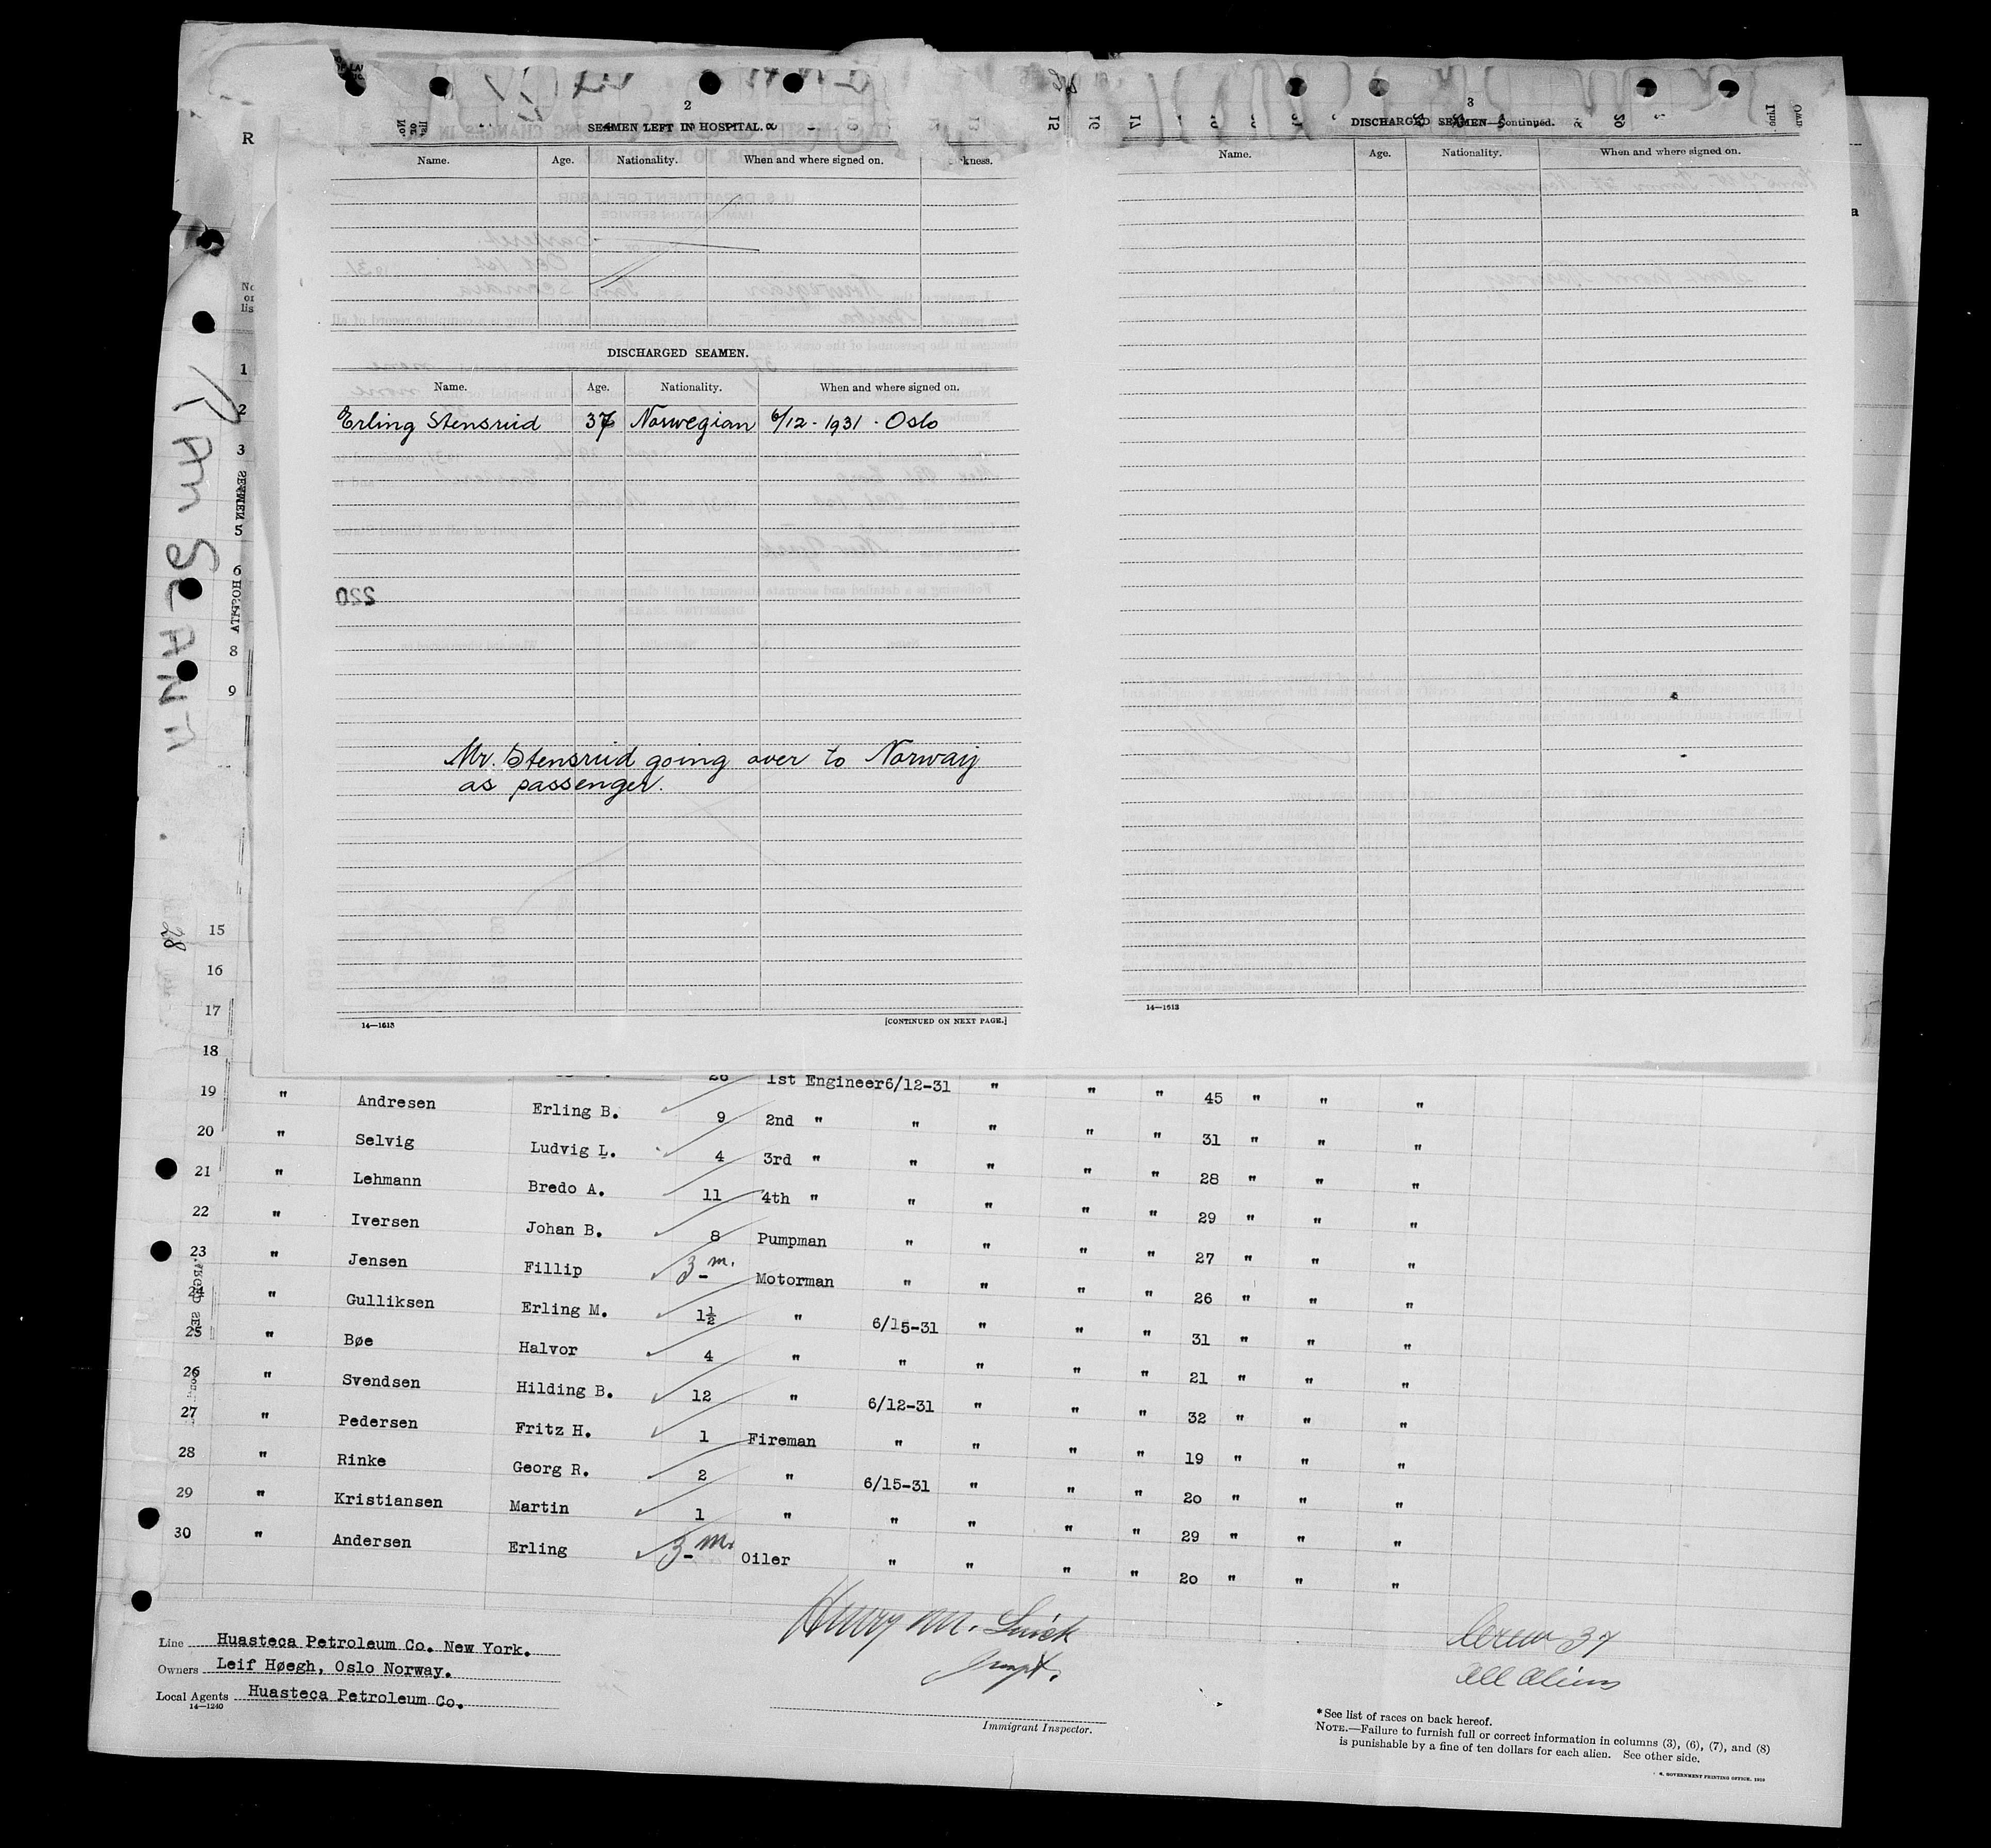 2
SEAMEN LEFT IN HOSPITAL.
Name. Age. Nationality. When and where signed on. kness.
DISCHARGED SEAMEN.
Name. Age. Nationality. When and where signed on.
Erling Stensrud 37 Norwegian 6/12 - 1931 - Oslo
220
Mr. Stensrud going over to Norway
as passenger.
14—1613 [CONTINUED ON NEXT PAGE.]
3
DISCHARGED SEAMEN—Continued.
Name. Age. Nationality. When and where signed on.
14—1613
R
No
or
lis
1
2
3
SEAMEN
5
6
8
9
15
16
17
18
SAN SEAHA
28
1st Engineer 6/12-31 " " " 45 " " "
19 " Andresen Erling B. 9 2nd " " " " " 31 " " "
20 " Selvig Ludvig L. 4 3rd " " " " " 28 " " "
21 " Lehmann Bredo A. 11 4th " " " " " 29 " " "
22 " Iversen Johan B. 8 Pumpman " " " " 27 " " "
23 " Jensen Fillip 3 m. Motorman " " " " 26 " " "
24 " Gulliksen Erling M. 1½ " 6/15-31 " " " 31 " " "
25 " Bøe Halvor 4 " " " " " 21 " " "
26 " Svendsen Hilding B. 12 " 6/12-31 " " " 32 " " "
27 " Pedersen Fritz H. 1 Fireman " " " " 19 " " "
28 " Rinke Georg R. 2 " 6/15-31 " " " 20 " " "
29 " Kristiansen Martin 1 " " " " " 29 " " "
30 " Andersen Erling 3 m. Oiler " " " " 20 " " "
Line Huasteca Petroleum Co. New York.
Owners Leif Høegh, Oslo Norway.
Local Agents Huasteca Petroleum Co.
14—1240
Henry M.
Immigrant Inspector.
Crew 37
All Aliens
*See list of races on back hereof.
NOTE.—Failure to furnish full or correct information in columns (3), (6), (7), and (8)
is punishable by a fine of ten dollars for each alien. See other side.
GOVERNMENT PRINTING OFFICE.